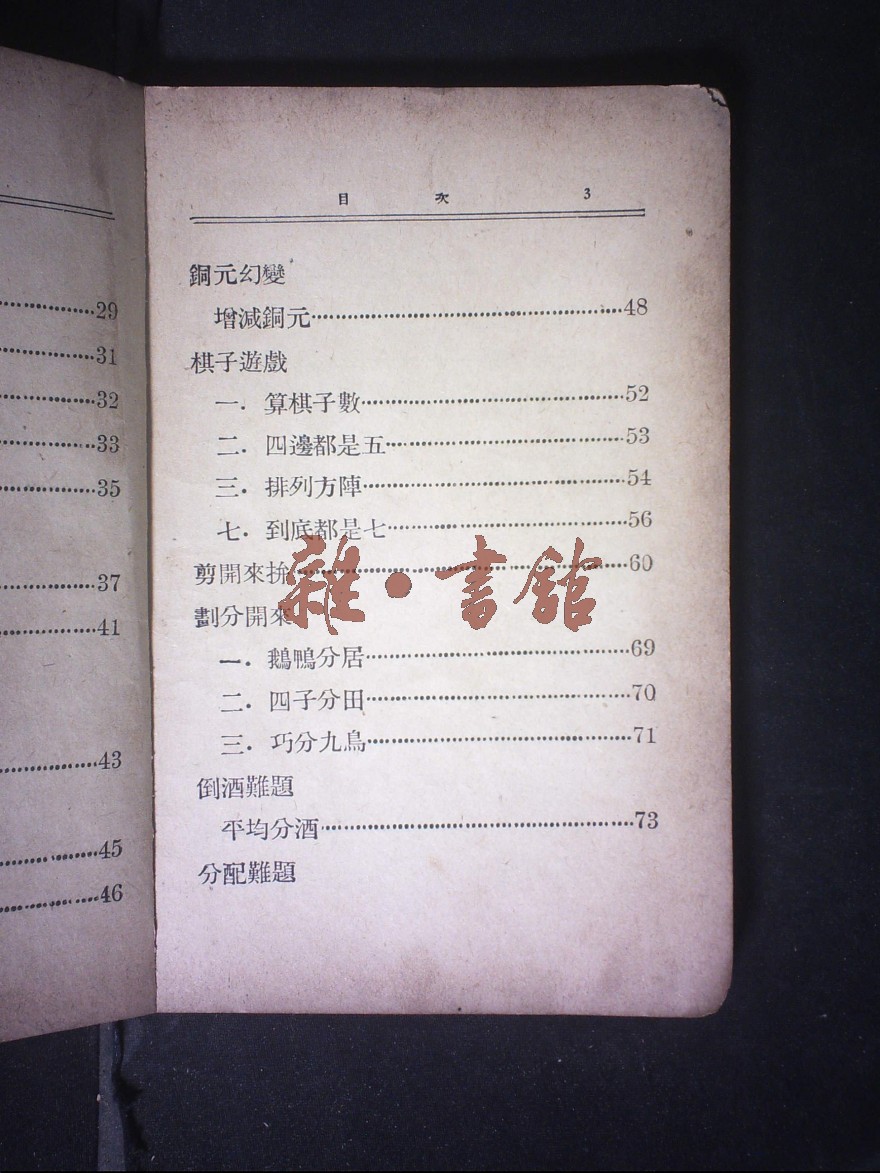 29
31
32
33
35
37
41
43
45
46
目 次 3
銅元幻變
增減銅元…48
棋子遊戲
一．算棋子數…52
二．四邊都是五…53
三．排列方陣…54
七．到底都是七…56
剪開來拚…60
劃分開來
一．鵝鴨分居…69
二．四子分田…70
三．巧分九鳥…71
倒酒難題
平均分酒…73
分配難題
雜·書館